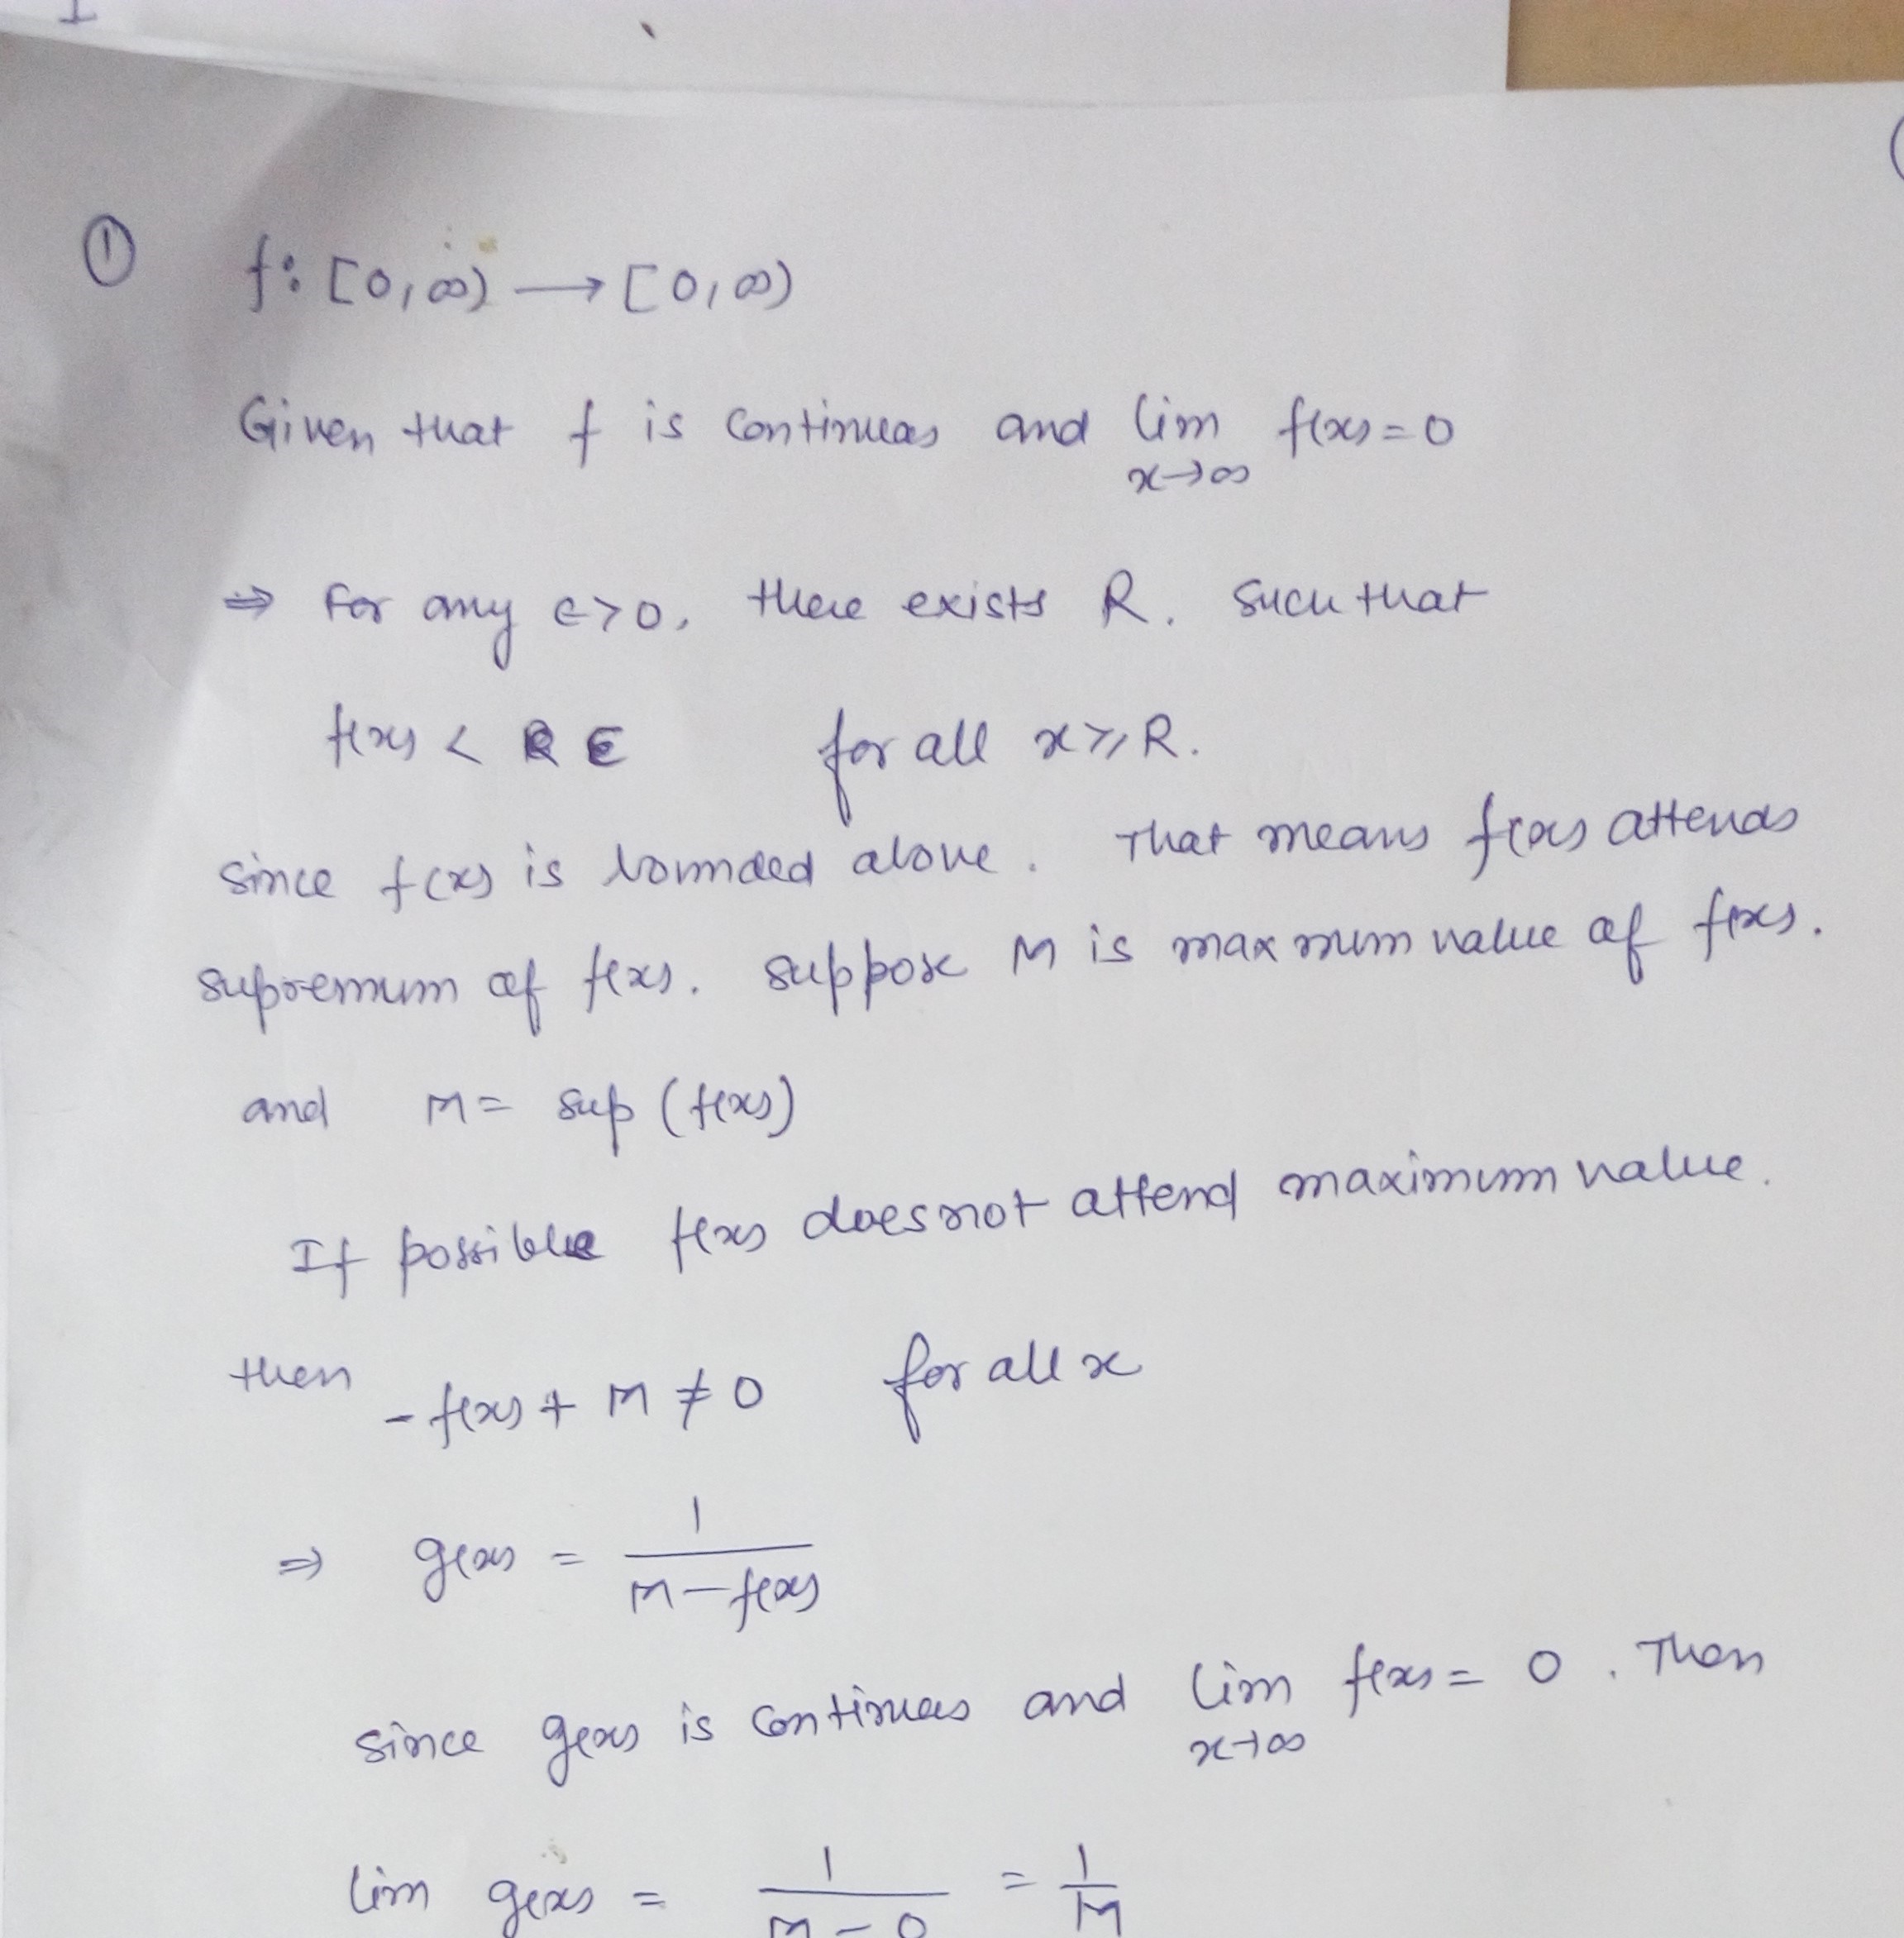 ① f: [0,∞) → [0,∞)
Given that f is continuous and lim f(x) = 0
x→∞
⇒ For any ϵ>0, there exists R. such that
f(x) < ϵ for all x ≥ R.
since f(x) is bounded above. That means f(x) attends
supremum of f(x). suppose M is maxmum value of f(x).
and M = sup (f(x))
If possible f(x) does not attend maximum value.
then -f(x) + M ≠ 0 for all x
⇒ g(x) = 1 / (M - f(x))
since g(x) is continues and lim f(x) = 0. Then
x→∞
lim g(x) = 1 / (M - 0) = 1/M